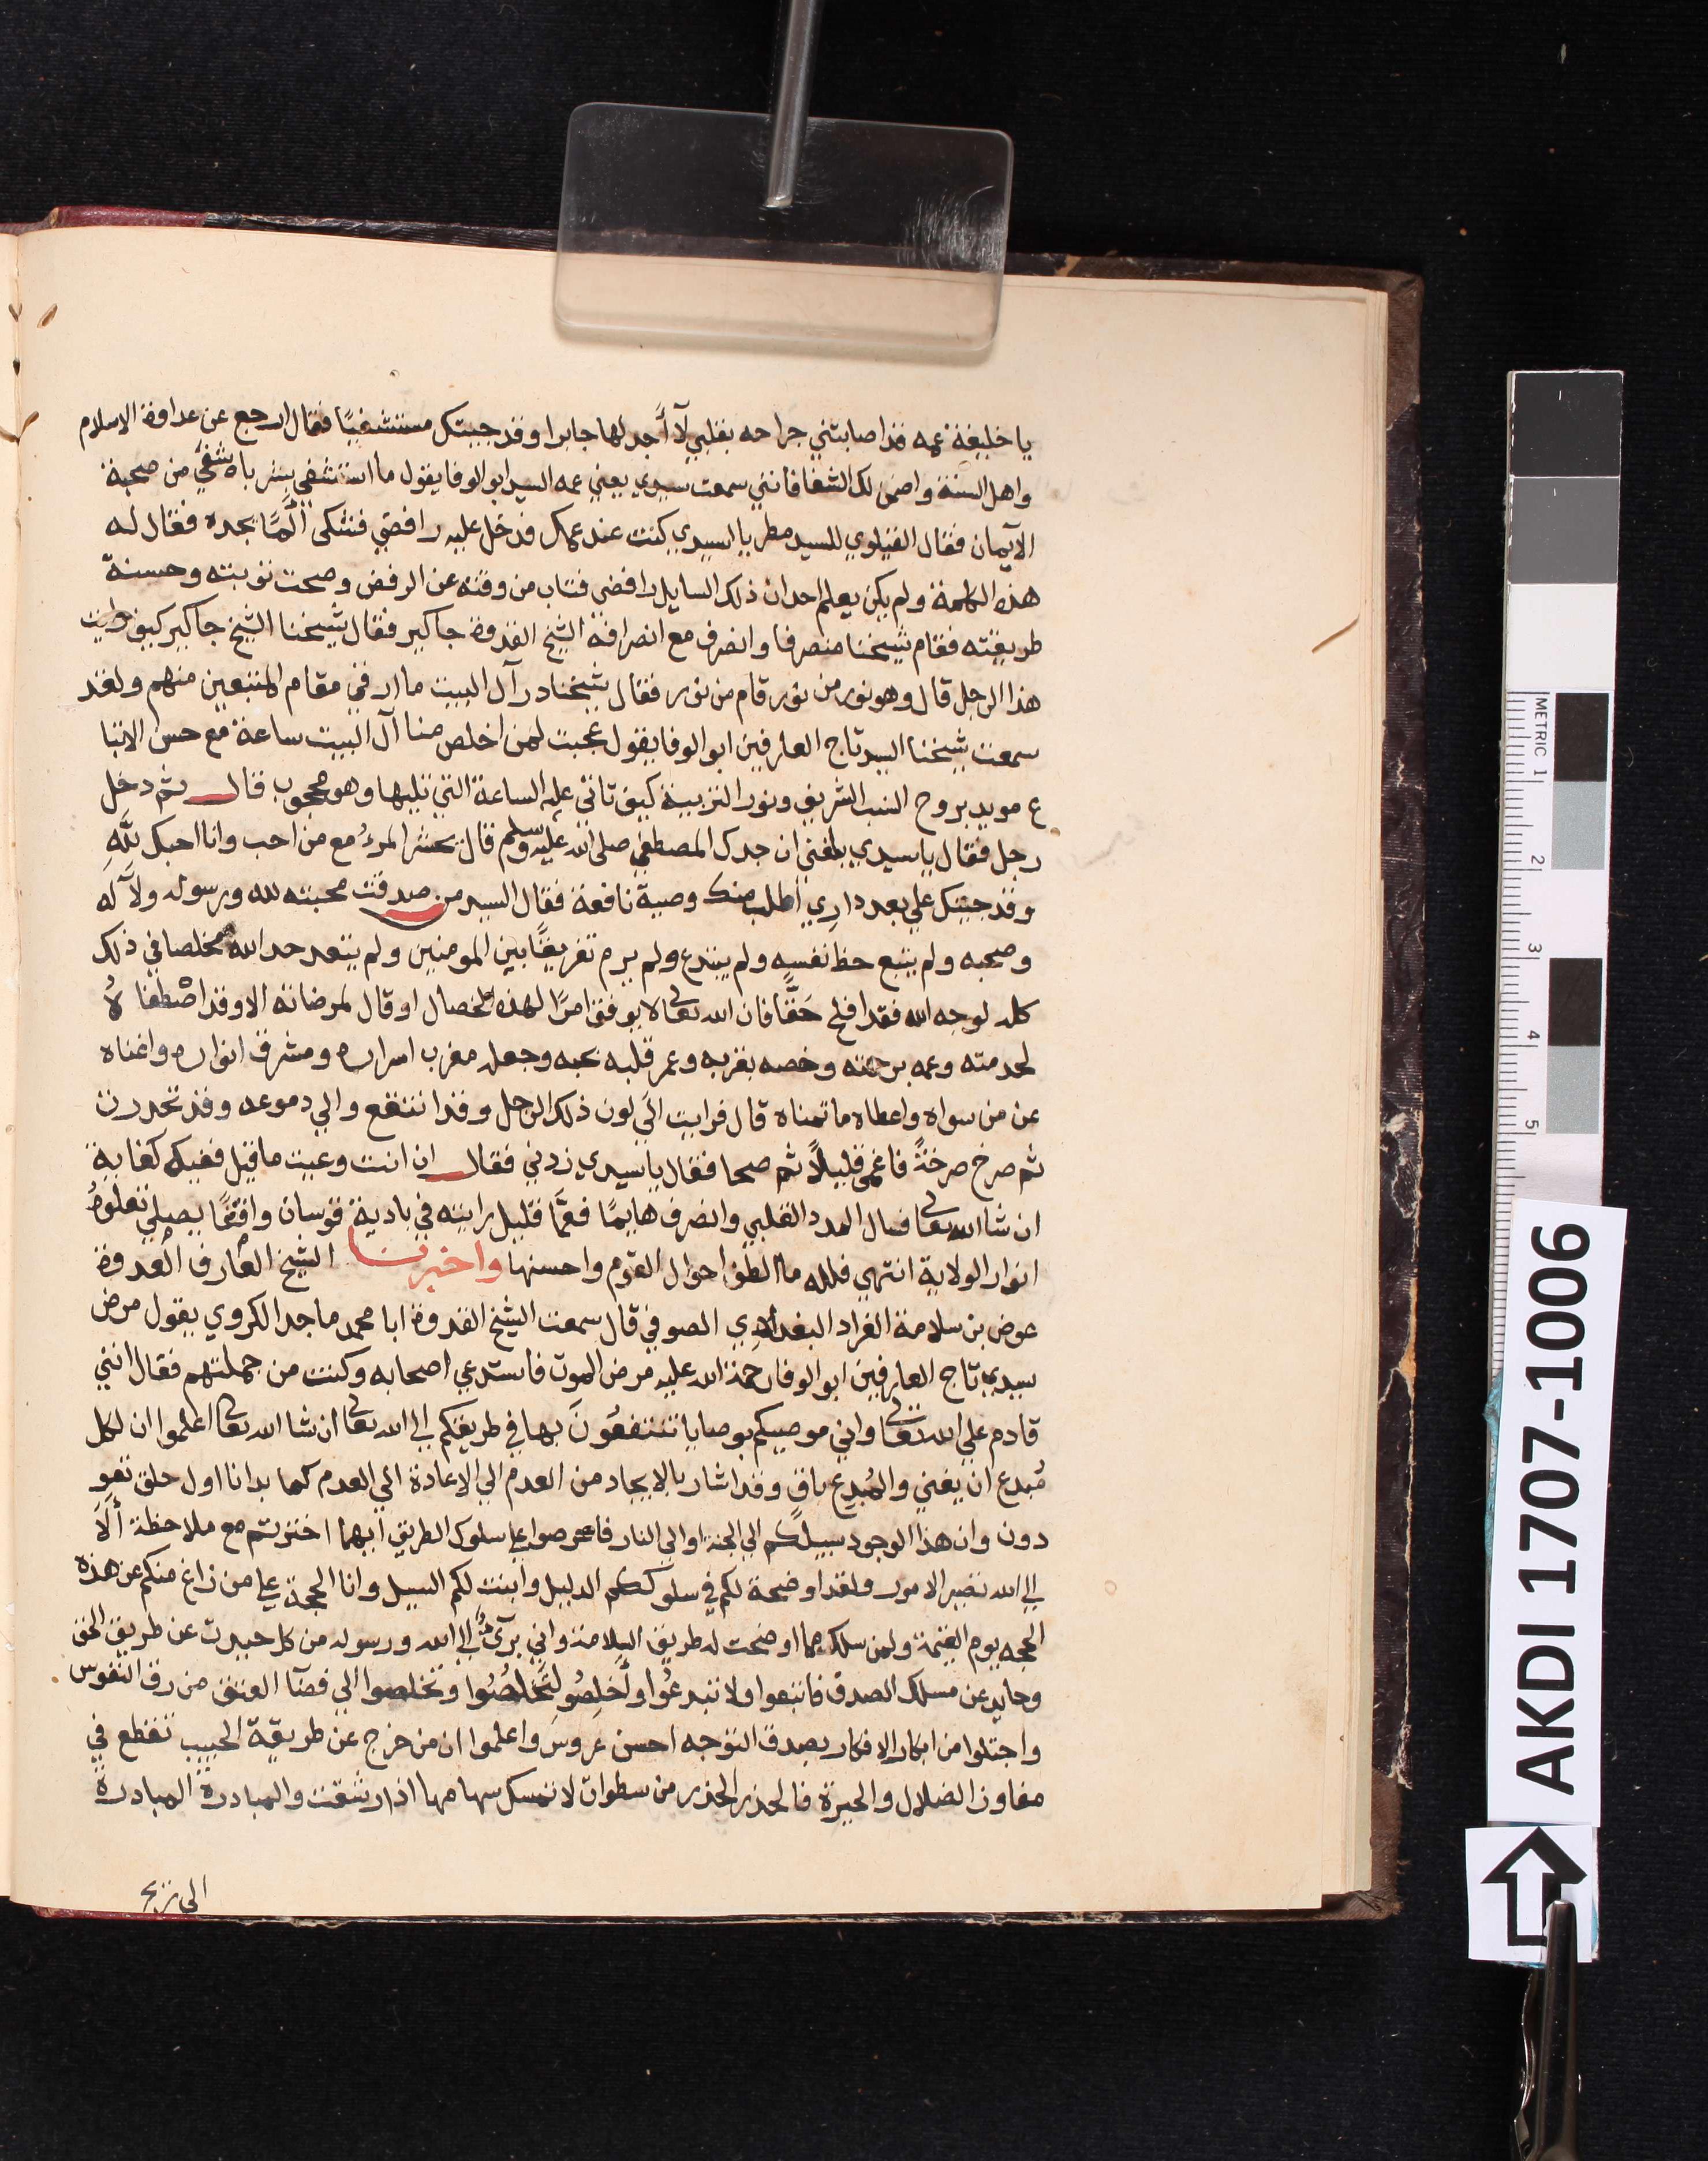 يا خليفة عمه قد اصابتني جراحه بقلبي لآ أجد لها جابرا وقد جيتك مستشفيًا فقال ارجع عن عداوة الاسلام
واهل السنة واضمن لك الشفا فانني سمعت سيدي يعني عمه السيد ابو الوفا يقول ما استشفي بشر باشفي من صحبة
الآيمان فقال القيلوي للسيد مطر يا سيدي كنت عند عمك فدخل عليه رافضي فشكى ألمًا بجده فقال له
هذه الكلمة ولم يكن يعلم احد ان ذلك السايل رافضي فتاب من وقته عن الرفض وصحت توبته وحسنة
طريقته فقام شيخنا منصرفا وانصرف مع انصرافه الشيخ القدوة جاكير فقال شيخنا الشيخ جاكير كيف رايت
هذا الرجل قال وهو نور من نور قام من نور فقال شيخنا در آل البيت ما ارفي مقام المتبعين منهم ولقد
سمعت شيخنا السيد تاج العارفين ابو الوفا يقول عجبت لمن اخلص منا آل البيت ساعة مع حسن الاتبا
ع مويد بروح النسب الشريف ونور التربية كيف تاتي عليه الساعة التي تليها وهو محجوب قال ثم دخل
رجل فقال يا سيدي بلغني ان جدك المصطفي صلى الله عليه وسلم قال يحشر المرءُ مع من احب وانا احبك للَّهِ
وقد جيتك علي بعد داري اطلب منك وصية نافعة فقال السيد من صدقت محبته لله ورسوله ولآله
وصحبه ولم يتبع حظ نفسه ولم يبتدع ولم يرم تفريقًا بين المومنين ولم يتعد حد الله مخلصا في ذلك
كله لوجه الله فقد افلح حَقًّا فان الله تعالى لا يوفق امرًا لهذه الخصال او قال لمرضاته الا وقد اصْطفا لُا
لخدمته وعمه برحمته وخصه بقربه وعمر قلبه بحبه وجعله مغرب اسراره ومشرق انواره واغناه
عن من سواه واعطاه ما تمناه قال فرايت الَي لون ذلك الرجل وقد انتقع والي دموعه وقد تحدرت
ثم صرخ صرخةً فاغمى قليلاً ثم صحا فقال يا سيدي زدني فقال ان انت وعيت ما قيل ففيك كفاية
ان شا الله تعالى فسال المدد القلبي وانصرف هايمًا فعمَّا قليل رايته في بادية قوسان واقفًا يصلي تعلوهُ
انوار الولاية انتهي فلله ما الطف احوال القوم واحسنها واخبرنا الشيخ العارف القدوة
عوض بن سلامة الغراد البغدادي الصوفي قال سمعت الشيخ القدوة ابا محمد ماجد الكروي يقول مرض
سيدي تاج العارفين ابو الوفا رحمة الله عليه مرض الموت فاستدعي اصحابه وكنت من جملتهم فقال انني
قادم علي الله تعالى واني موصيكم بوصايا تنتفعُونَ بها في طريقكم الي الله تعالى ان شا الله تعالى اعلموا ان لكل
مُبدع ان يفني والمُبدِع باقٍ وقد اشار بالايجاد من العدم الي الاعادة الي العدم كما بدانا اول خلق تعو
دون وان هذا الوجود سبيلكم الي الجنة او الى النار فاحرصوا على سلوك الطريق ايهما اخترتم مع ملاحظة أَلاَ
الي الله تصير الامور ولقد اوضحة لكم في سلوككم الدليل وابنت لكم السبيل وانا الحجة علي من زاغ منكم عن هذه
الحجه يوم القيمة ولمن سلك مما اوضحت له طريق السلامة واني برآيٌ الي الله ورسوله من كل حيدت عن طريق الحق
وحايد عن مسلك الصدق فاتبعوا ولا تبدعُوا واَخلِصُو لتَخلصُوا وتخلصوا الي فضآ العتق من رق النفوس
واجتلوا من ابكار الافكار بصدق التوجه احسن عروسَ واعلموا ان من خرج عن طريقة الحبيب تقطع في
مفاوز الضلال والحيرة فالحذر الحذر من سطوات لا تمسك سهامها اذا رشقت والمبادرة المبادرة
الى نزح